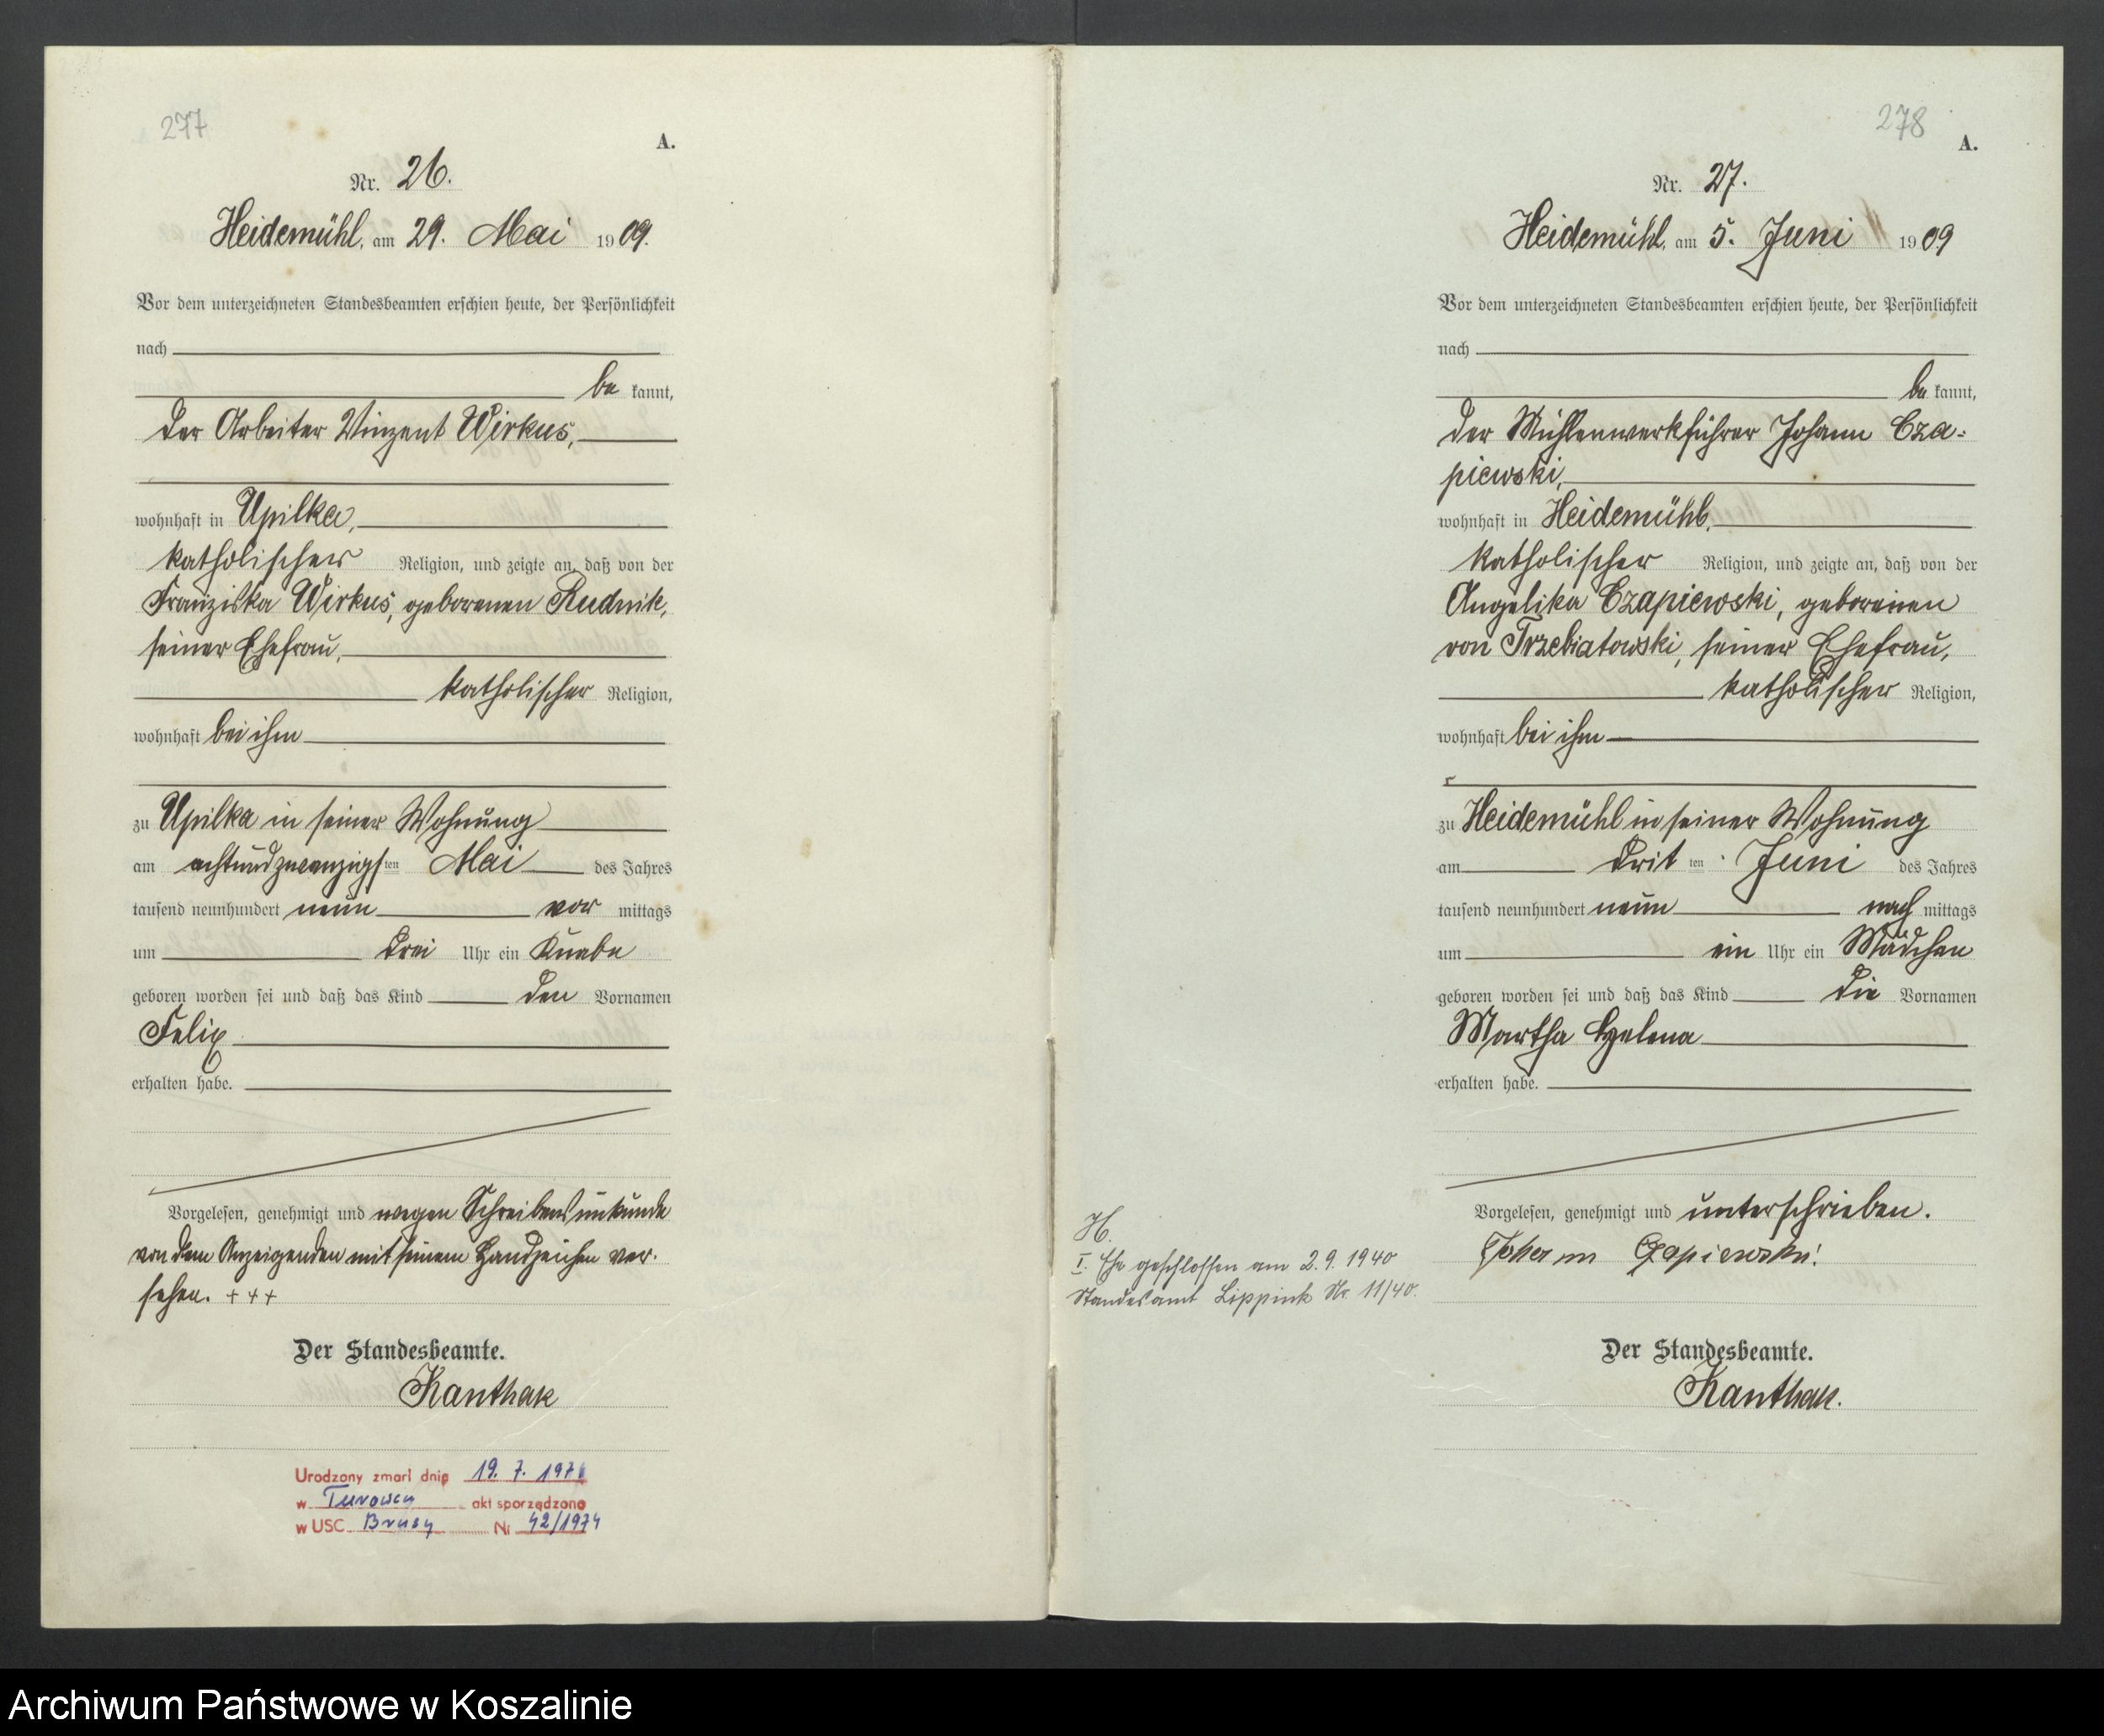 277
A.
Nr. 26.
Heidemühl, am 29. Mai 1909.
Vor dem unterzeichneten Standesbeamten erschien heute, der Persönlichkeit
nach
be kannt,
der Arbeiter Vinzent Wirkus,
wohnhaft in Upilka,
katholischer Religion, und zeigte an, daß von der
Franziska Wirkus, geborenen Rudnik,
seiner Ehefrau,
katholischer Religion,
wohnhaft bei ihm
zu Upilka in seiner Wohnung
am achtundzwanzigsten Mai des Jahres
tausend neunhundert neun vor mittags
um drei Uhr ein Knabe
geboren worden sei und daß das Kind den Vornamen
Felix
erhalten habe.
Vorgelesen, genehmigt und wegen Schreibensunkunde
von dem Anzeigenden mit seinem Handzeichen ver-
sehen. +++
Der Standesbeamte.
Kanthak
Urodzony zmarł dnia 19. 7. 1974
w akt sporządzono
w USC Brusy Nr 42/1974
278
A.
Nr. 27.
Heidemühl, am 5. Juni 1909
Vor dem unterzeichneten Standesbeamten erschien heute, der Persönlichkeit
nach
be kannt,
der Mühlenwerkführer Johann Cza-
piewski,
wohnhaft in Heidemühl,
katholischer Religion, und zeigte an, daß von der
Angelika Czapiewski, geborenen
von Trzebiatowski, seiner Ehefrau,
katholischer Religion,
wohnhaft bei ihm
zu Heidemühl in seiner Wohnung
am dritten Juni des Jahres
tausend neunhundert neun nach mittags
um ein Uhr ein Mädchen
geboren worden sei und daß das Kind die Vornamen
Martha Helena
erhalten habe.
Vorgelesen, genehmigt und unterschrieben.
Johann Czapiewski
Der Standesbeamte.
Kanthak.
H.
I. Ehe geschlossen am 2.9.1940
Standesamt Nr. 11/40.
Archiwum Państwowe w Koszalinie